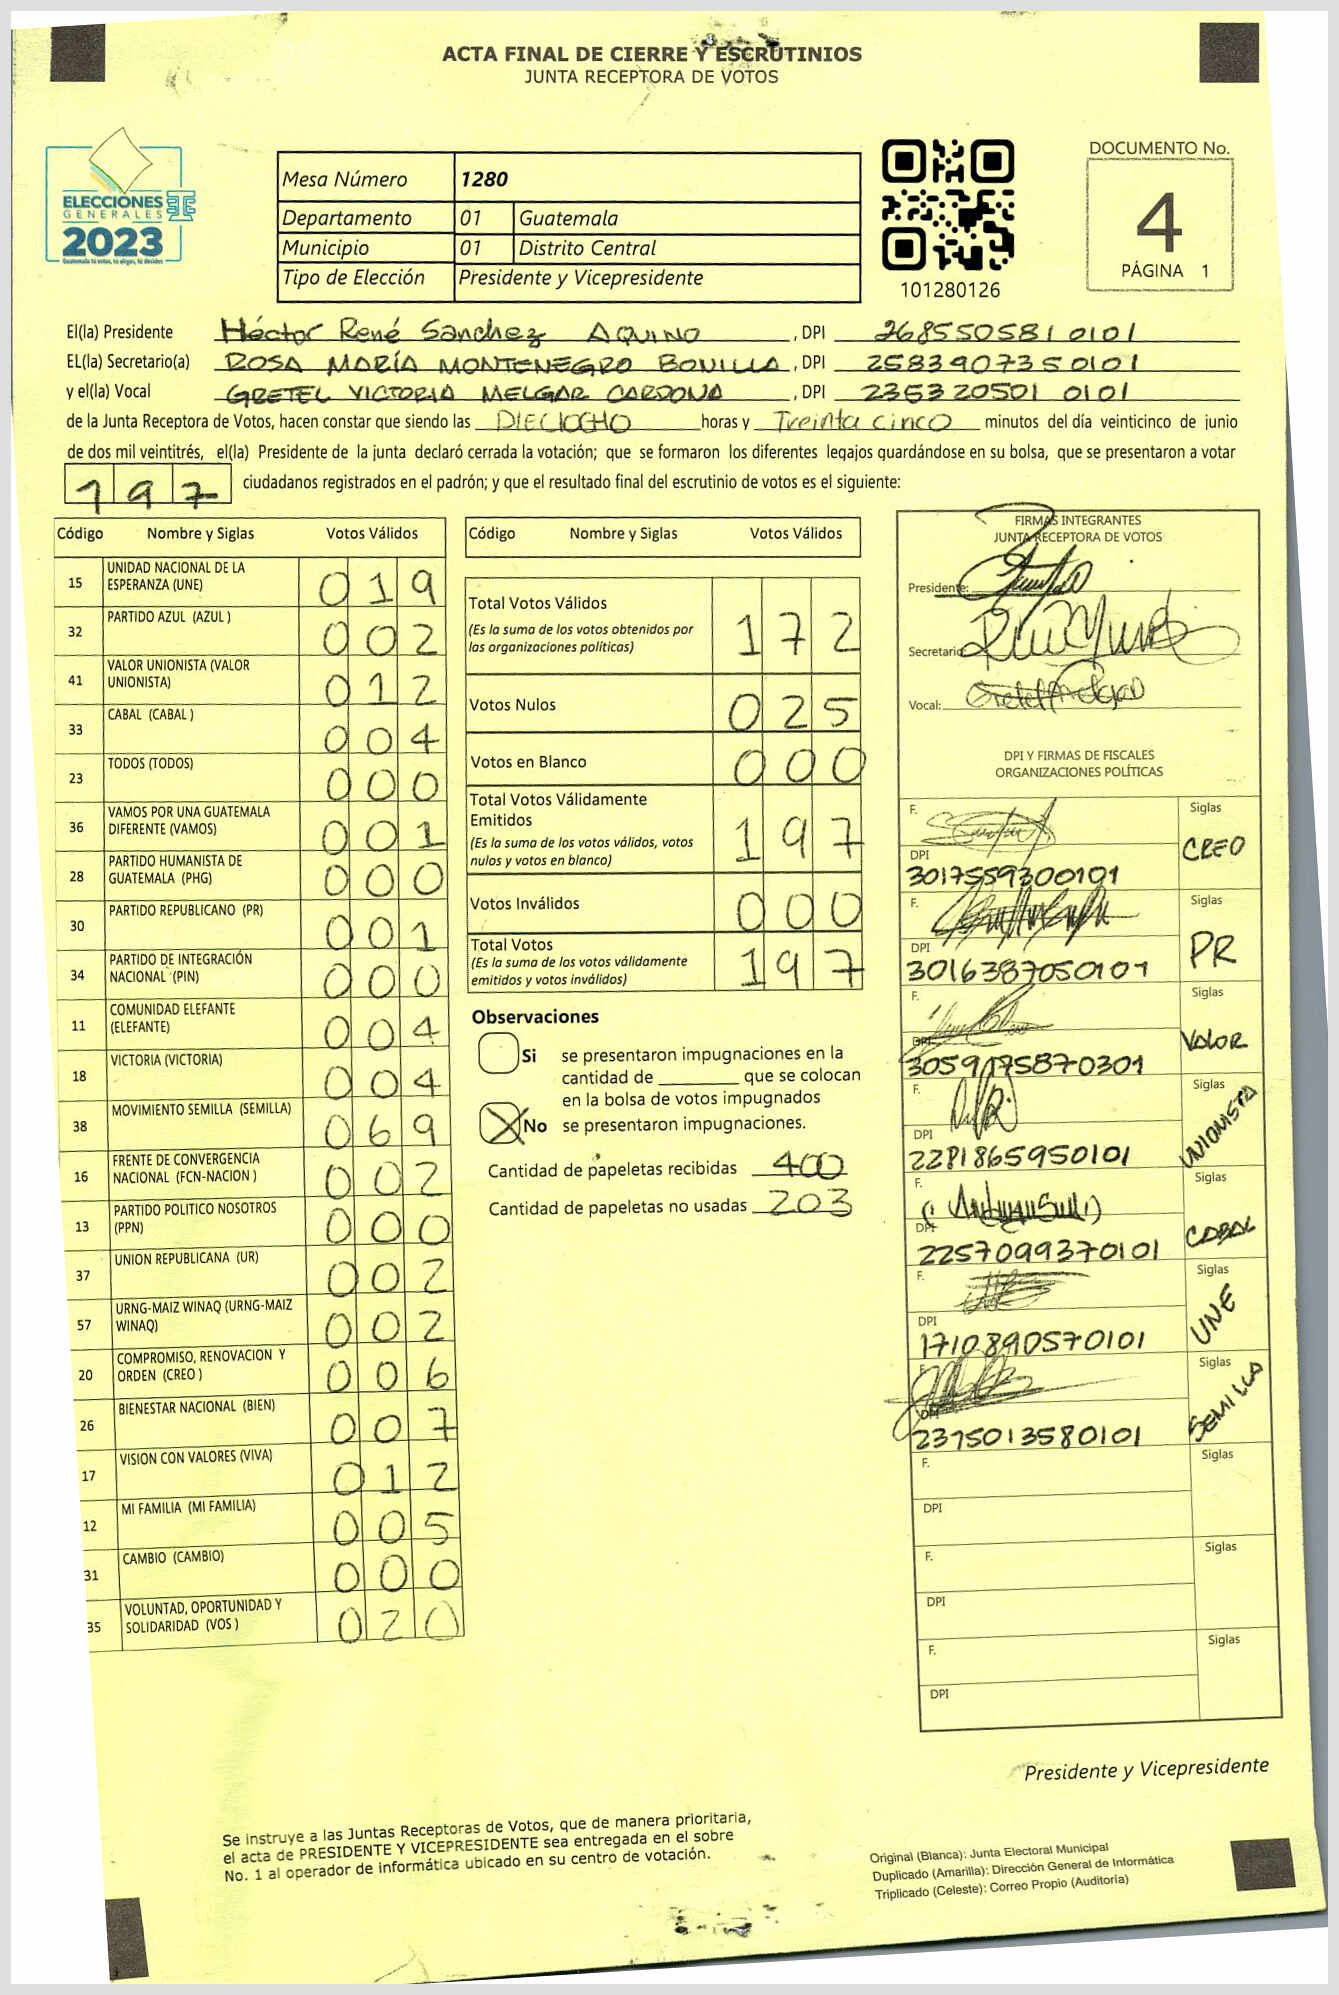 ACTA FINAL DE CIERRE Y ESCRUTINIOS
JUNTA RECEPTORA DE VOTOS
ELECCIONES
GENERALES
2023
Guatemala tú votas, tú eliges, tú decides
Mesa Número 1280
Departamento 01 Guatemala
Municipio 01 Distrito Central
Tipo de Elección Presidente y Vicepresidente
101280126
DOCUMENTO No.
4
PÁGINA 1
El(la) Presidente Héctor René Sánchez AQUINO, DPI 268550581 0101
EL(la) Secretario(a) ROSA MARÍA MONTENEGRO BONILLA, DPI 258390735 0101
y el(la) Vocal GRETEL VICTORIA MELGAR CARDONA, DPI 235320501 0101
de la Junta Receptora de Votos, hacen constar que siendo las DIECIOCHO horas y Treinta cinco minutos del día veinticinco de junio
de dos mil veintitrés, el(la) Presidente de la junta declaró cerrada la votación; que se formaron los diferentes legajos quardándose en su bolsa, que se presentaron a votar
197 ciudadanos registrados en el padrón; y que el resultado final del escrutinio de votos es el siguiente:
Código Nombre y Siglas Votos Válidos
15 UNIDAD NACIONAL DE LA ESPERANZA (UNE) 019
32 PARTIDO AZUL (AZUL ) 002
41 VALOR UNIONISTA (VALOR UNIONISTA) 012
33 CABAL (CABAL ) 004
23 TODOS (TODOS) 000
36 VAMOS POR UNA GUATEMALA DIFERENTE (VAMOS) 001
28 PARTIDO HUMANISTA DE GUATEMALA (PHG) 000
30 PARTIDO REPUBLICANO (PR) 001
34 PARTIDO DE INTEGRACIÓN NACIONAL (PIN) 000
11 COMUNIDAD ELEFANTE (ELEFANTE) 004
18 VICTORIA (VICTORIA) 004
38 MOVIMIENTO SEMILLA (SEMILLA) 069
16 FRENTE DE CONVERGENCIA NACIONAL (FCN-NACION ) 002
13 PARTIDO POLITICO NOSOTROS (PPN) 000
37 UNION REPUBLICANA (UR) 002
57 URNG-MAIZ WINAQ (URNG-MAIZ WINAQ) 002
20 COMPROMISO, RENOVACION Y ORDEN (CREO ) 006
26 BIENESTAR NACIONAL (BIEN) 007
17 VISION CON VALORES (VIVA) 012
12 MI FAMILIA (MI FAMILIA) 005
31 CAMBIO (CAMBIO) 000
35 VOLUNTAD, OPORTUNIDAD Y SOLIDARIDAD (VOS ) 020
Código Nombre y Siglas Votos Válidos
Total Votos Válidos 172
(Es la suma de los votos obtenidos por
las organizaciones politicas)
Votos Nulos 025
Votos en Blanco 000
Total Votos Válidamente
Emitidos 197
(Es la suma de los votos válidos, votos
nulos y votos en blanco)
Votos Inválidos 000
Total Votos 197
(Es la suma de los votos válidamente
emitidos y votos inválidos)
Observaciones
Si se presentaron impugnaciones en la
cantidad de ________ que se colocan
en la bolsa de votos impugnados
X No se presentaron impugnaciones.
Cantidad de papeletas recibidas 400
Cantidad de papeletas no usadas 203
FIRMAS INTEGRANTES
JUNTA RECEPTORA DE VOTOS
Presidente:
Secretario
Vocal: Gretel Melgar
DPI Y FIRMAS DE FISCALES
ORGANIZACIONES POLÍTICAS
F. Siglas
DPI CREO
3017559300101
F. Siglas
DPI PR
3016387050101
F. Siglas
DPI VALOR
3059175870301
F. Siglas
DPI UNIONISTA
2281865950101
F. Siglas
DPI CABAL
2257099370101
F. Siglas
DPI UNE
1710890570101
F. Siglas
DPI SEMILLA
2375013580101
F. Siglas
DPI
F. Siglas
DPI
F. Siglas
DPI
Presidente y Vicepresidente
Se instruye a las Juntas Receptoras de Votos, que de manera prioritaria,
el acta de PRESIDENTE Y VICEPRESIDENTE sea entregada en el sobre
No. 1 al operador de informática ubicado en su centro de votación.
Original (Blanca): Junta Electoral Municipal
Duplicado (Amarilla): Dirección General de Informática
Triplicado (Celeste): Correo Propio (Auditoría)